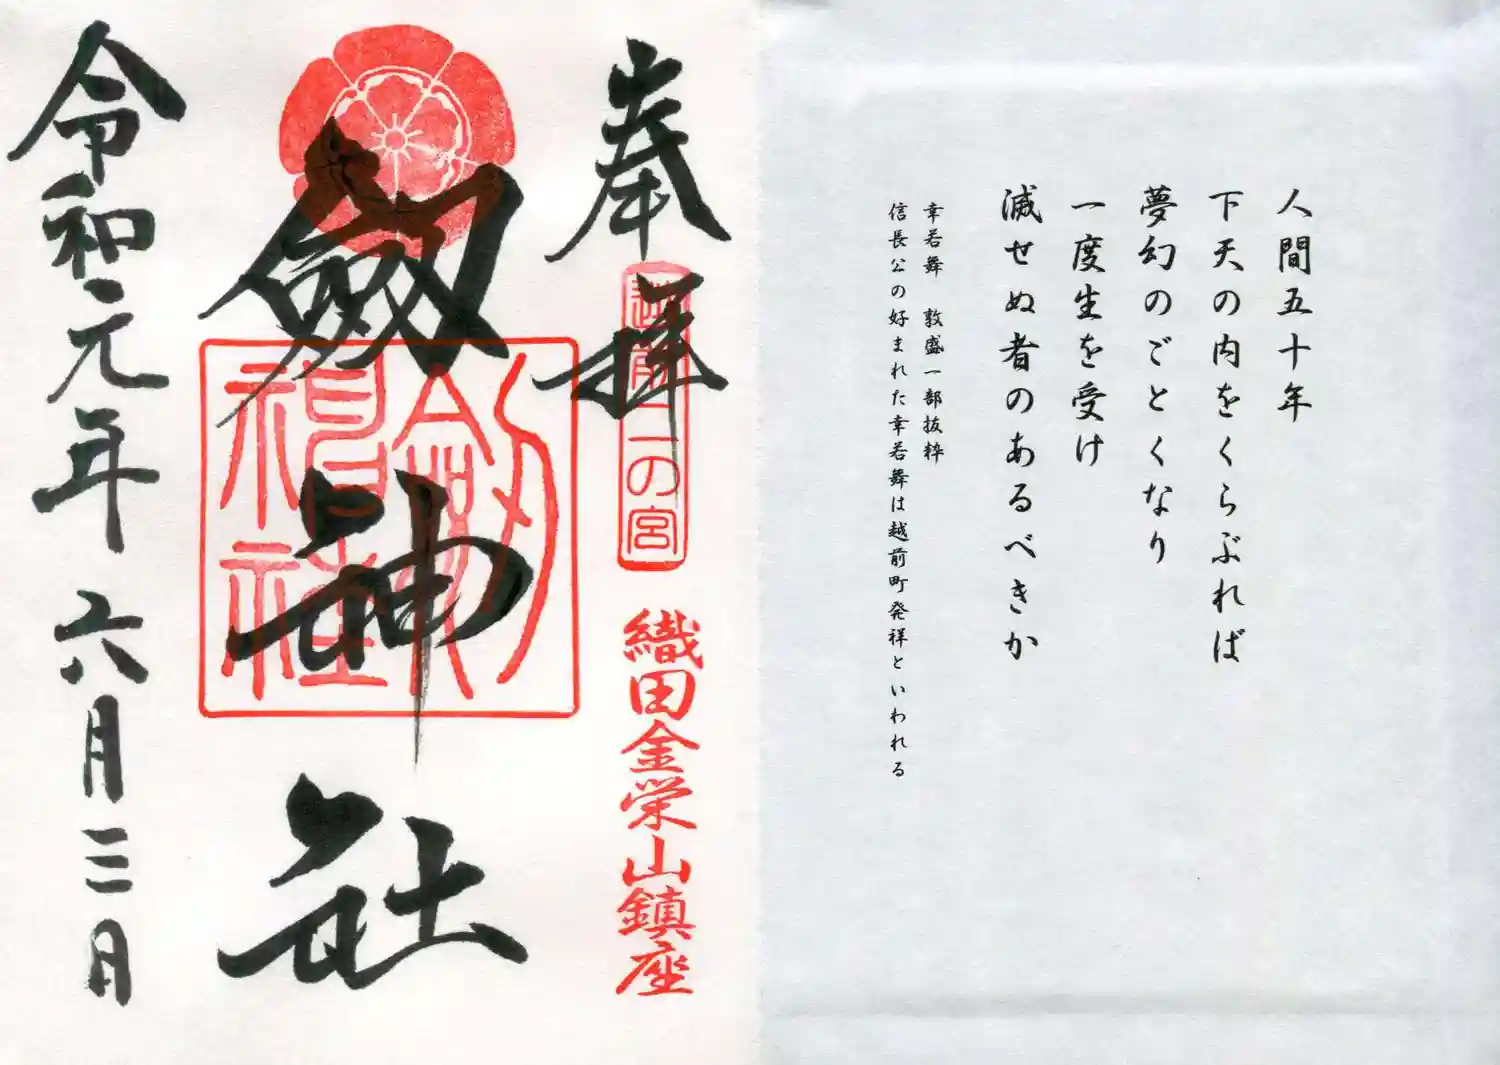 人間五十年
下天の内をくらぶれば
夢幻のごとくなり
一度生を受け
滅せぬ者のあるべきか
幸若舞 敦盛一部抜粋
信長公の好まれた幸若舞は越前町発祥といわれる
奉拝
越前二の宮
織田金栄山鎮座
劔神社
劔神社
令和元年六月二日